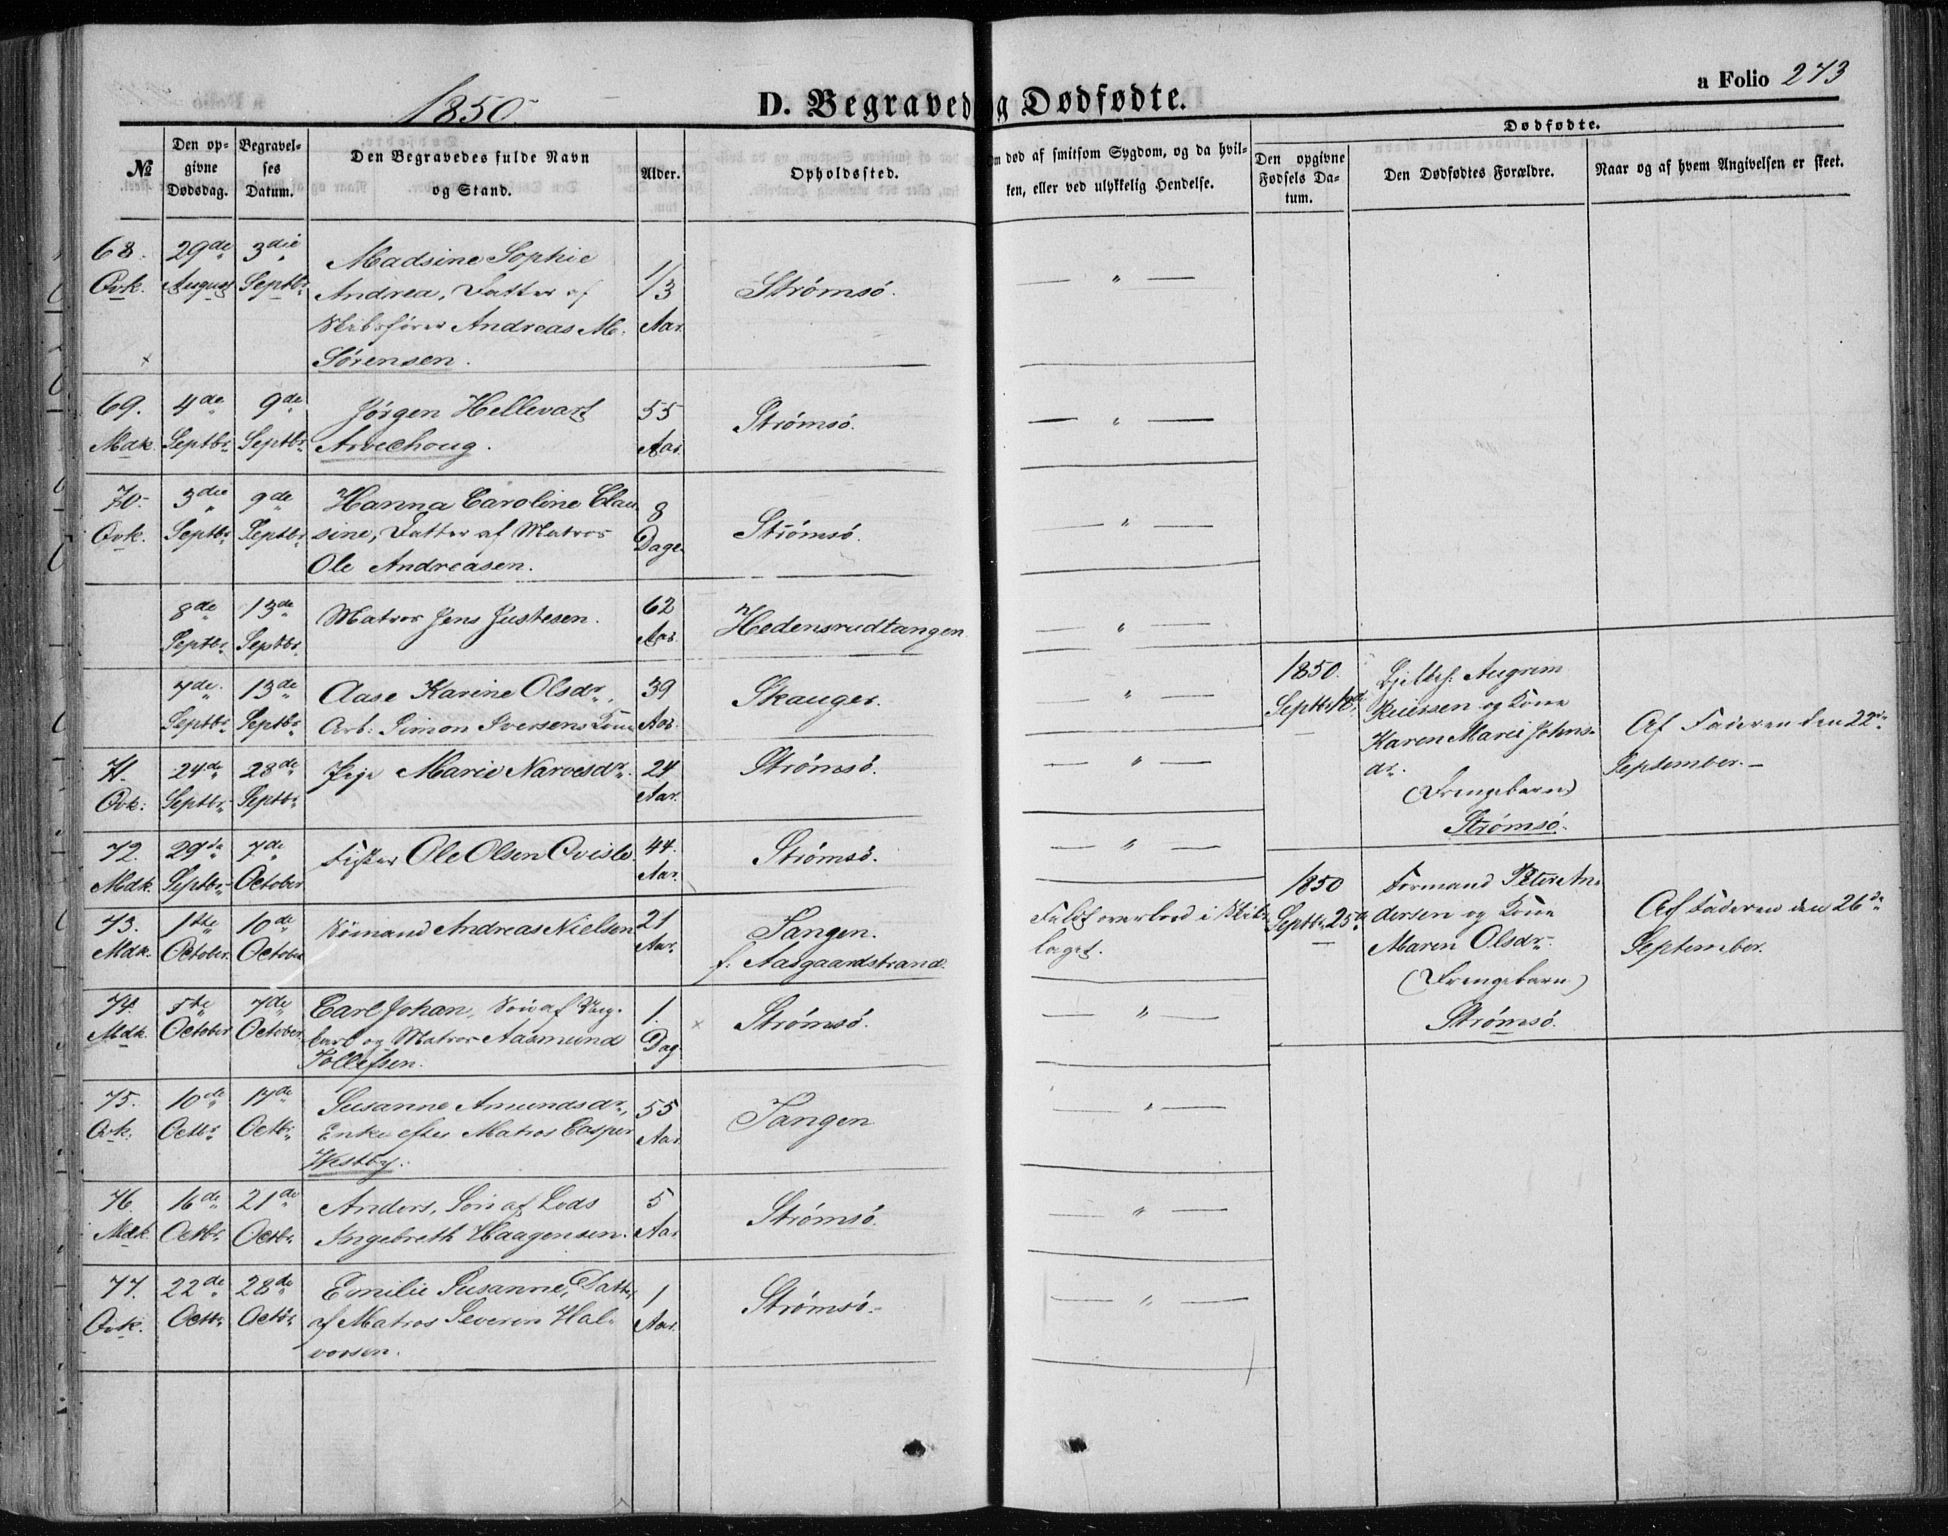 1850
D. Begravede og Dødfødte.
a Folio 273
№
Den op-
givne
Dødsdag.
Begravel-
ses
Datum.
Den Begravedes fulde Navn
og Stand.
Alder.
Opholdssted.
Om død af smitsom Sygdom, og da hvil-
ken, eller ved ulykkelig Hendelse.
Dødfødte.
Den opgivne
Fødsels Da-
tum.
Den Dødfødtes Forældre.
Naar og af hvem Angivelsen er skeet.
68. 29de 3die Madsine Sophie
Qvk. August Septbr. Andrea, Datter af 1/3 Strømsö. — " —
Skibsfører Andreas M. Aar.
Sörensen.
69. 4de 9de Jörgen Hellevart 55 Strömsö. — " —
Mdk. Septbr. Septbr. Arvechoug. Aar.
70. 3die 9de Hanna Caroline Clau 8
Qvk. Septbr. Septbr. sine, Datter af Matros Dage Strömsö. — " —
Ole Andreasen.
8de 13de Matros Jens Justesen. 62 Hedensrudtangen. — " —
Septbr. Septbr. Aar.
7de 13de Aase Karine Olsdr., 39 Skauger. — " —
Septbr. Septbr. Arb: Simon Iversens Kone Aar.
71. 24de 28de Pige Marie Narvesdr. 24 Strömsö. — " —
Qvk. Septbr. Septbr. Aar.
72. 29de 7de Fisker Ole Olsen Qvisle. 44. Strömsö. — " —
Mdk. Septbr. October Aar.
73. 1ste 10de Sömand Andreas Nielsen 21 Tangen. Faldt overbord i Skibs
Mdk. October. October Aar. f. Aasgaardstrand. laget.
74. 5te 7de Carl Johan, Sön af
Mdk. October October. og Matros Aasmund 1. Dag Strömsö. — " —
Tollefsen.
75. 10de 17de Susanne Amundsdr., 55 Tangen — " —
Qvk. Octbr. Octbr. Enke efter Matros Casper Aar.
Westby.
76. 16de 21de Anders, Sön af Lods 5 Strömsö. — " —
Mdk. Octbr. Octbr. Ingebreth Haagensen. Aar.
77. 22de 28de Emilie Susanne, Datter 1 Strömsö. — " —
Qvk. Octbr. Octbr. af Matros Severin Hal- Aar.
vorsen.
1850.
Septbr.
Augrim
og Kone
Karen Marie Johns-
dr.
(Drengebarn)
Strömsö.
Af Faderen den 22de
September. —
1850
Septbr. 25de
Formand Peter An
dersen og Kone
Maren Olsdr.
(Drengebarn)
Strömsö.
Af Faderen den 26de
September.